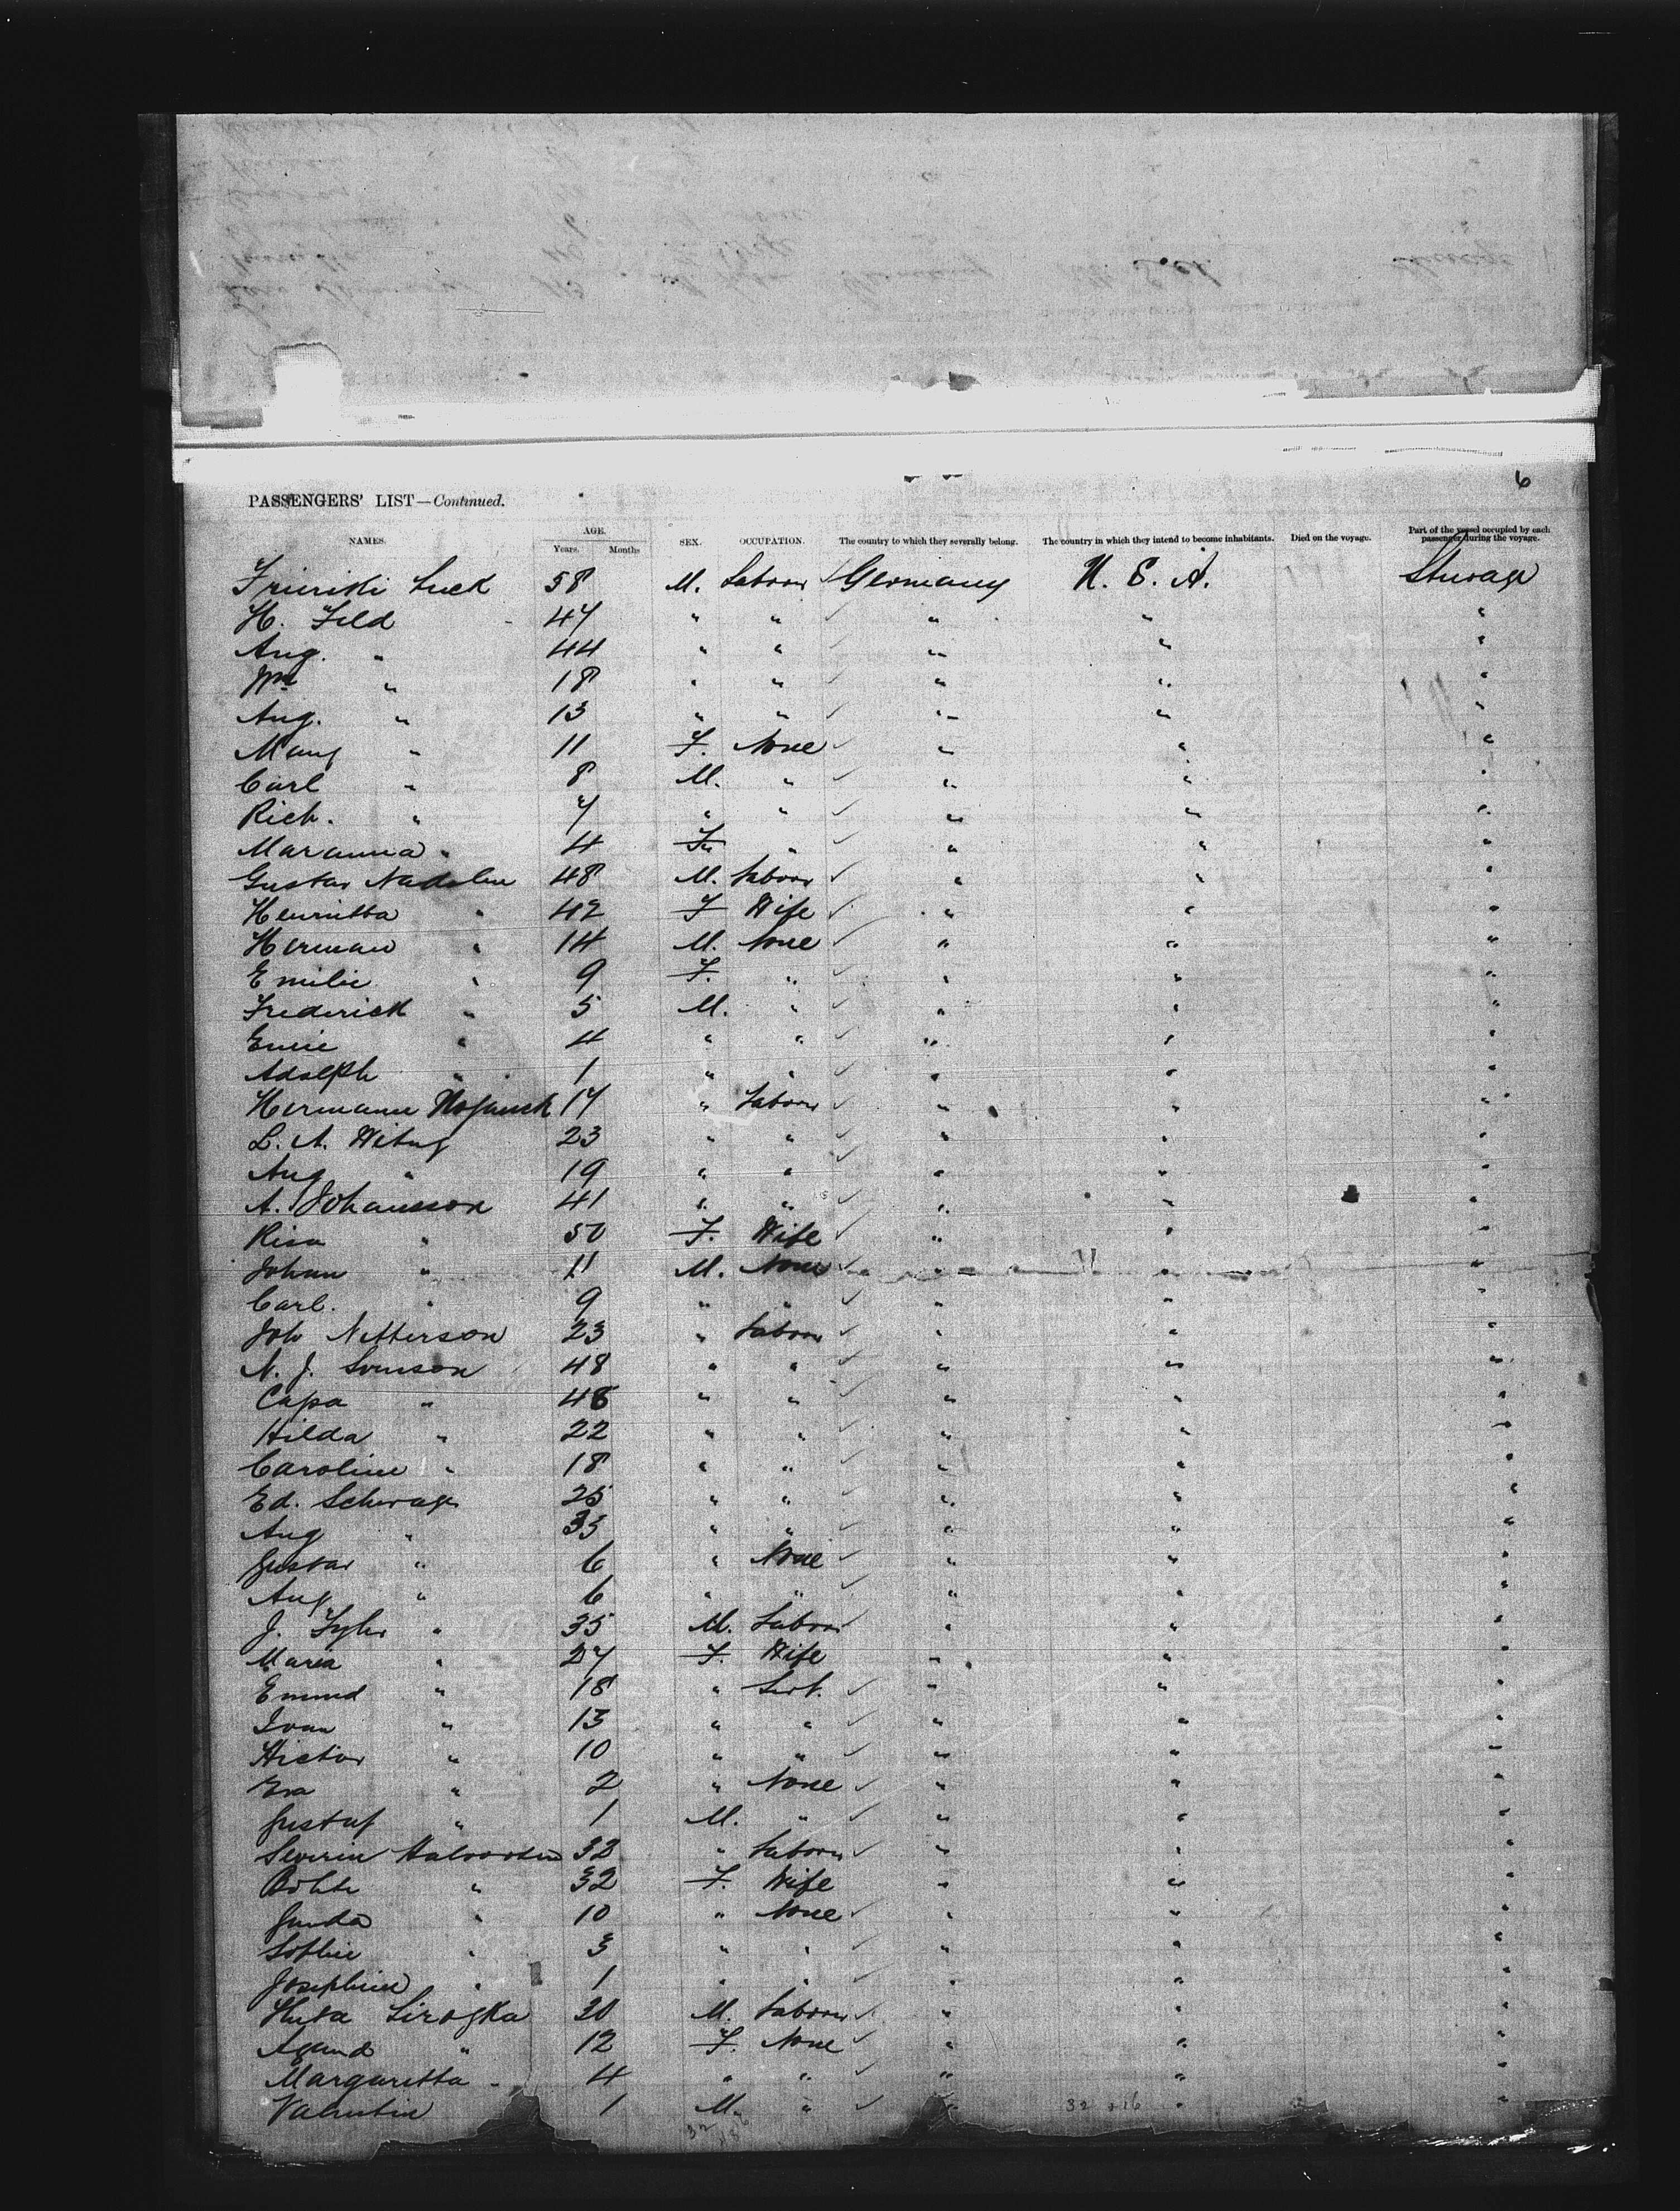 6
PASSENGERS' LIST—Continued.
NAMES. AGE. Years. Months SEX. OCCUPATION. The country to which they severally belong. The country in which they intend to become inhabitants. Died on the voyage. Part of the vessel occupied by each passenger during the voyage.
Luck 58 M. Labour ✓ Germany U. S. A. Steerage
H. Feld 47 " " ✓ " " "
Aug. " 44 " " ✓ " " "
Wm " 18 " " ✓ " " "
Aug. " 13 " " ✓ " " "
Mary " 11 F. None ✓ " " "
Carl " 8 M. " ✓ " " "
Rich. " 7 " " ✓ " " "
Maranna " 4 F. " ✓ " " "
Gustav 48 M. Labour ✓ " " "
Henritta " 42 F Wife ✓ " " "
Herman " 14 M. None ✓ " " "
Emilie " 9 F. " ✓ " " "
Frederick " 5 M. " ✓ " " "
" 4 " " ✓ " " "
Adolph " 1 " " ✓ " " "
Hermann 17 " Labour ✓ " " "
L. A. 23 " " ✓ " " "
Aug " 19 " " ✓ " " "
A. Johansson 41 " " ✓ " " "
" 50 F. Wife ✓ " " "
Johan " 11 M. None ✓ " " "
Carl. " 9 " " ✓ " " "
Joh Netterson 23 " Labour ✓ " " "
N. J. Svenson 48 " " ✓ " " "
Capa " 48 " " ✓ " " "
Hilda " 22 " " ✓ " " "
Caroline " 18 " " ✓ " " "
Ed. Schrage 25 " " ✓ " " "
Aug " 33 " " ✓ " " "
Gustav " 6 " None ✓ " " "
Aug " 6 " " ✓ " " "
J. " 35 M. Labour ✓ " " "
Maria " 27 F. Wife " " "
" 18 " Sert. ✓ " " "
Ivan " 13 " " ✓ " " "
" 10 " " ✓ " " "
Eva " 2 " None ✓ " " "
Gustaf " 1 M. " ✓ " " "
Severin Halvorsen 32 " Labour ✓ " " "
" 32 F. Wife " " "
Gunda " 10 " None ✓ " " "
Sophie " 3 " " ✓ " " "
Josephine " 1 " " ✓ " " "
20 M. Labour ✓ " " "
" 12 F. None ✓ " " "
Margaretta " 4 " " ✓ " " "
Valentin 1 M. " ✓ " " "
32 16
32